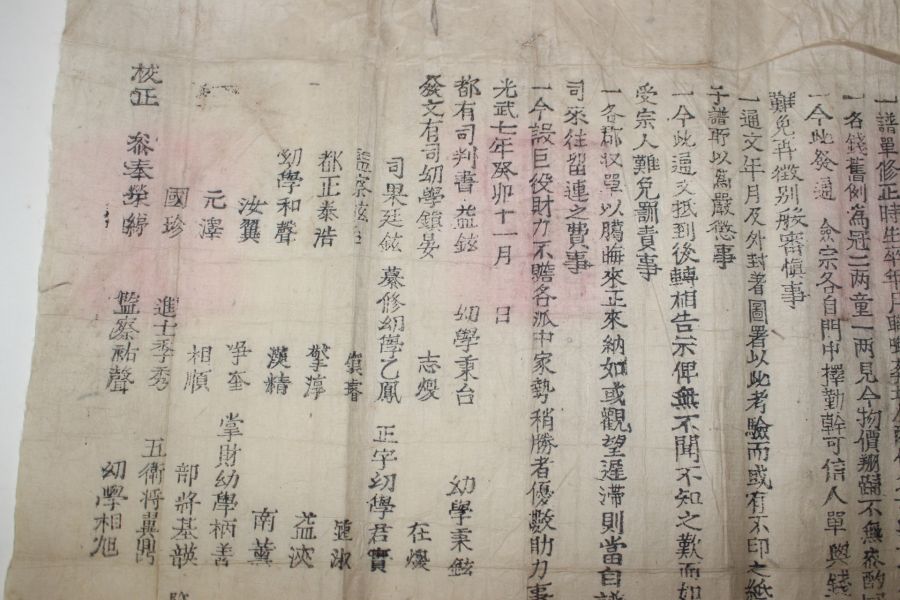 一譜單修正時生卒年月
一名錢舊例爲冠二两童一两見今物價翔 不無
一今此發通 僉宗各自門中擇勤幹可信人單與錢
難免再徵別般審愼事
一通文年月及外封着圖署以此考驗而或有不印之紙
于譜所以爲嚴懲事
一今此通文抵到後轉相告示俾無不聞不知之歎而如
受宗人難免罰責事
一各郡收單以臘晦來正來納如或觀望遲滯則當自譜
司來徃留連之費事
一今設巨役財力不贍各派中家勢稍勝者優數助力事
光武七年癸卯十一月 日
都有司判書 益鉉 幼學秉台 幼學秉鉉
發文有司幼學鎮晏 志燮 在燮
司果廷鉉 募修幼學乙鳳 正字幼學君實
監察
都正泰浩 擎淳 益浹
幼學和聲 漢精 南薰
汝翼 奎 掌財幼學柄善
元澤 相順 部將基韺
國珍 進士季秀 五衛將
校正 叅奉榮 監察祐聲 幼學相旭